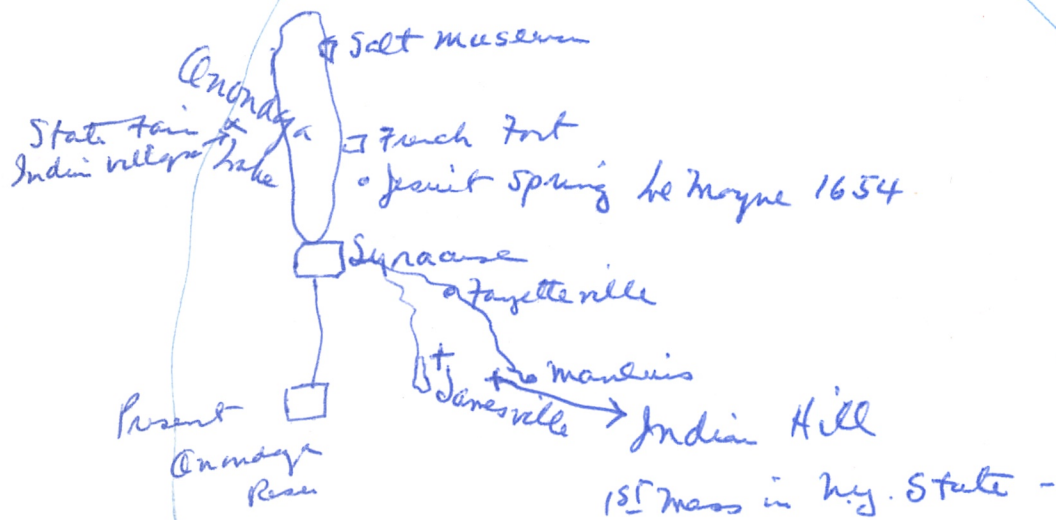 Salt Museum
Onondaga
Lake
State Fair
Indian village
French Fort
Jesuit Spring Le Moyne 1654
Syracuse
Fayetteville
Manlius
Jamesville
Indian Hill
Present
Onondaga
1st Mass in N.Y. State -